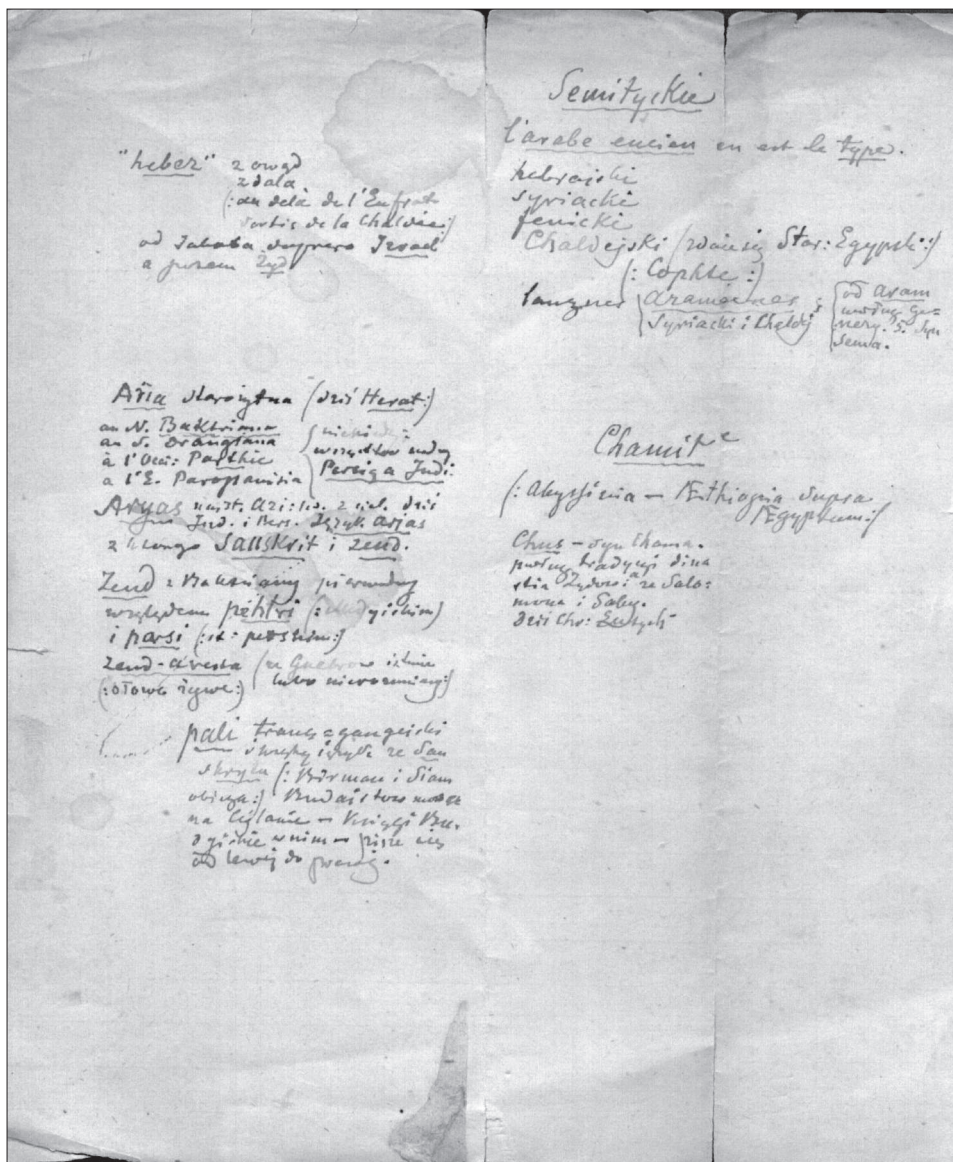 "heber" z owąd
zdala
(: au delà de l'Eufrate
sortis de la Chaldée :)
od Jakoba dopiero Izrael
a potem Żyd

Aria starożytna (dziś Herat :)
au N. Baktriana
au S. Drangiana
à l'Occi: Parthie
à l'E. Paropamisia
Persią a Judi:
Aryas z nich dziś
Ind. i Pers. Język arjas
z którego Sanskrit i Zend.
Zend z Baktriany pierwotny
względem pehlvi
i parsi (: st: perskim :)
Zend-avesta (u Guebrów istnie
(: słowo żywe :)
pali transgangeicki
ze San
skrytu (: Birman i Siam
obiega :) Budaistów
na Ceylanie — Księgi Bu-
dyjskie w nim — pisze się
od lewéj do prawéj.

Semityckie
l'arabe encien en est le type.
hebrajski
syriacki
fenicki
Chaldejski (zdaie się Star: Egypski :)
(: Cophte :)
langues Arameenes
Syriacki i Chaldej
od Aram
według Ge-
nezy. 5. syn
Sema.

Chamit
(: Abyssienia — Æthiopia supra
Ægyptum :)
Chus — syn Chama.
podług tradycyi dina
stia Żydows: ze Salo:
mona i Saby.
dziś Chr: